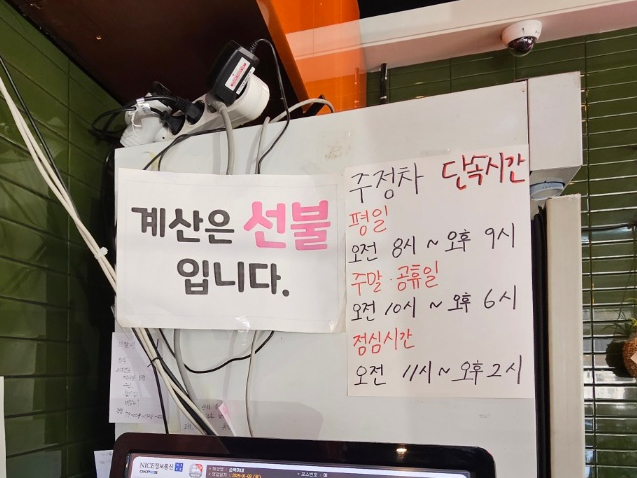 계산은 선불
입니다.
주정차 단속시간
평일
오전 8시 ~ 오후 9시
주말·공휴일
오전 10시 ~ 오후 6시
점심시간
오전 11시 ~ 오후 2시
NICE정보통신